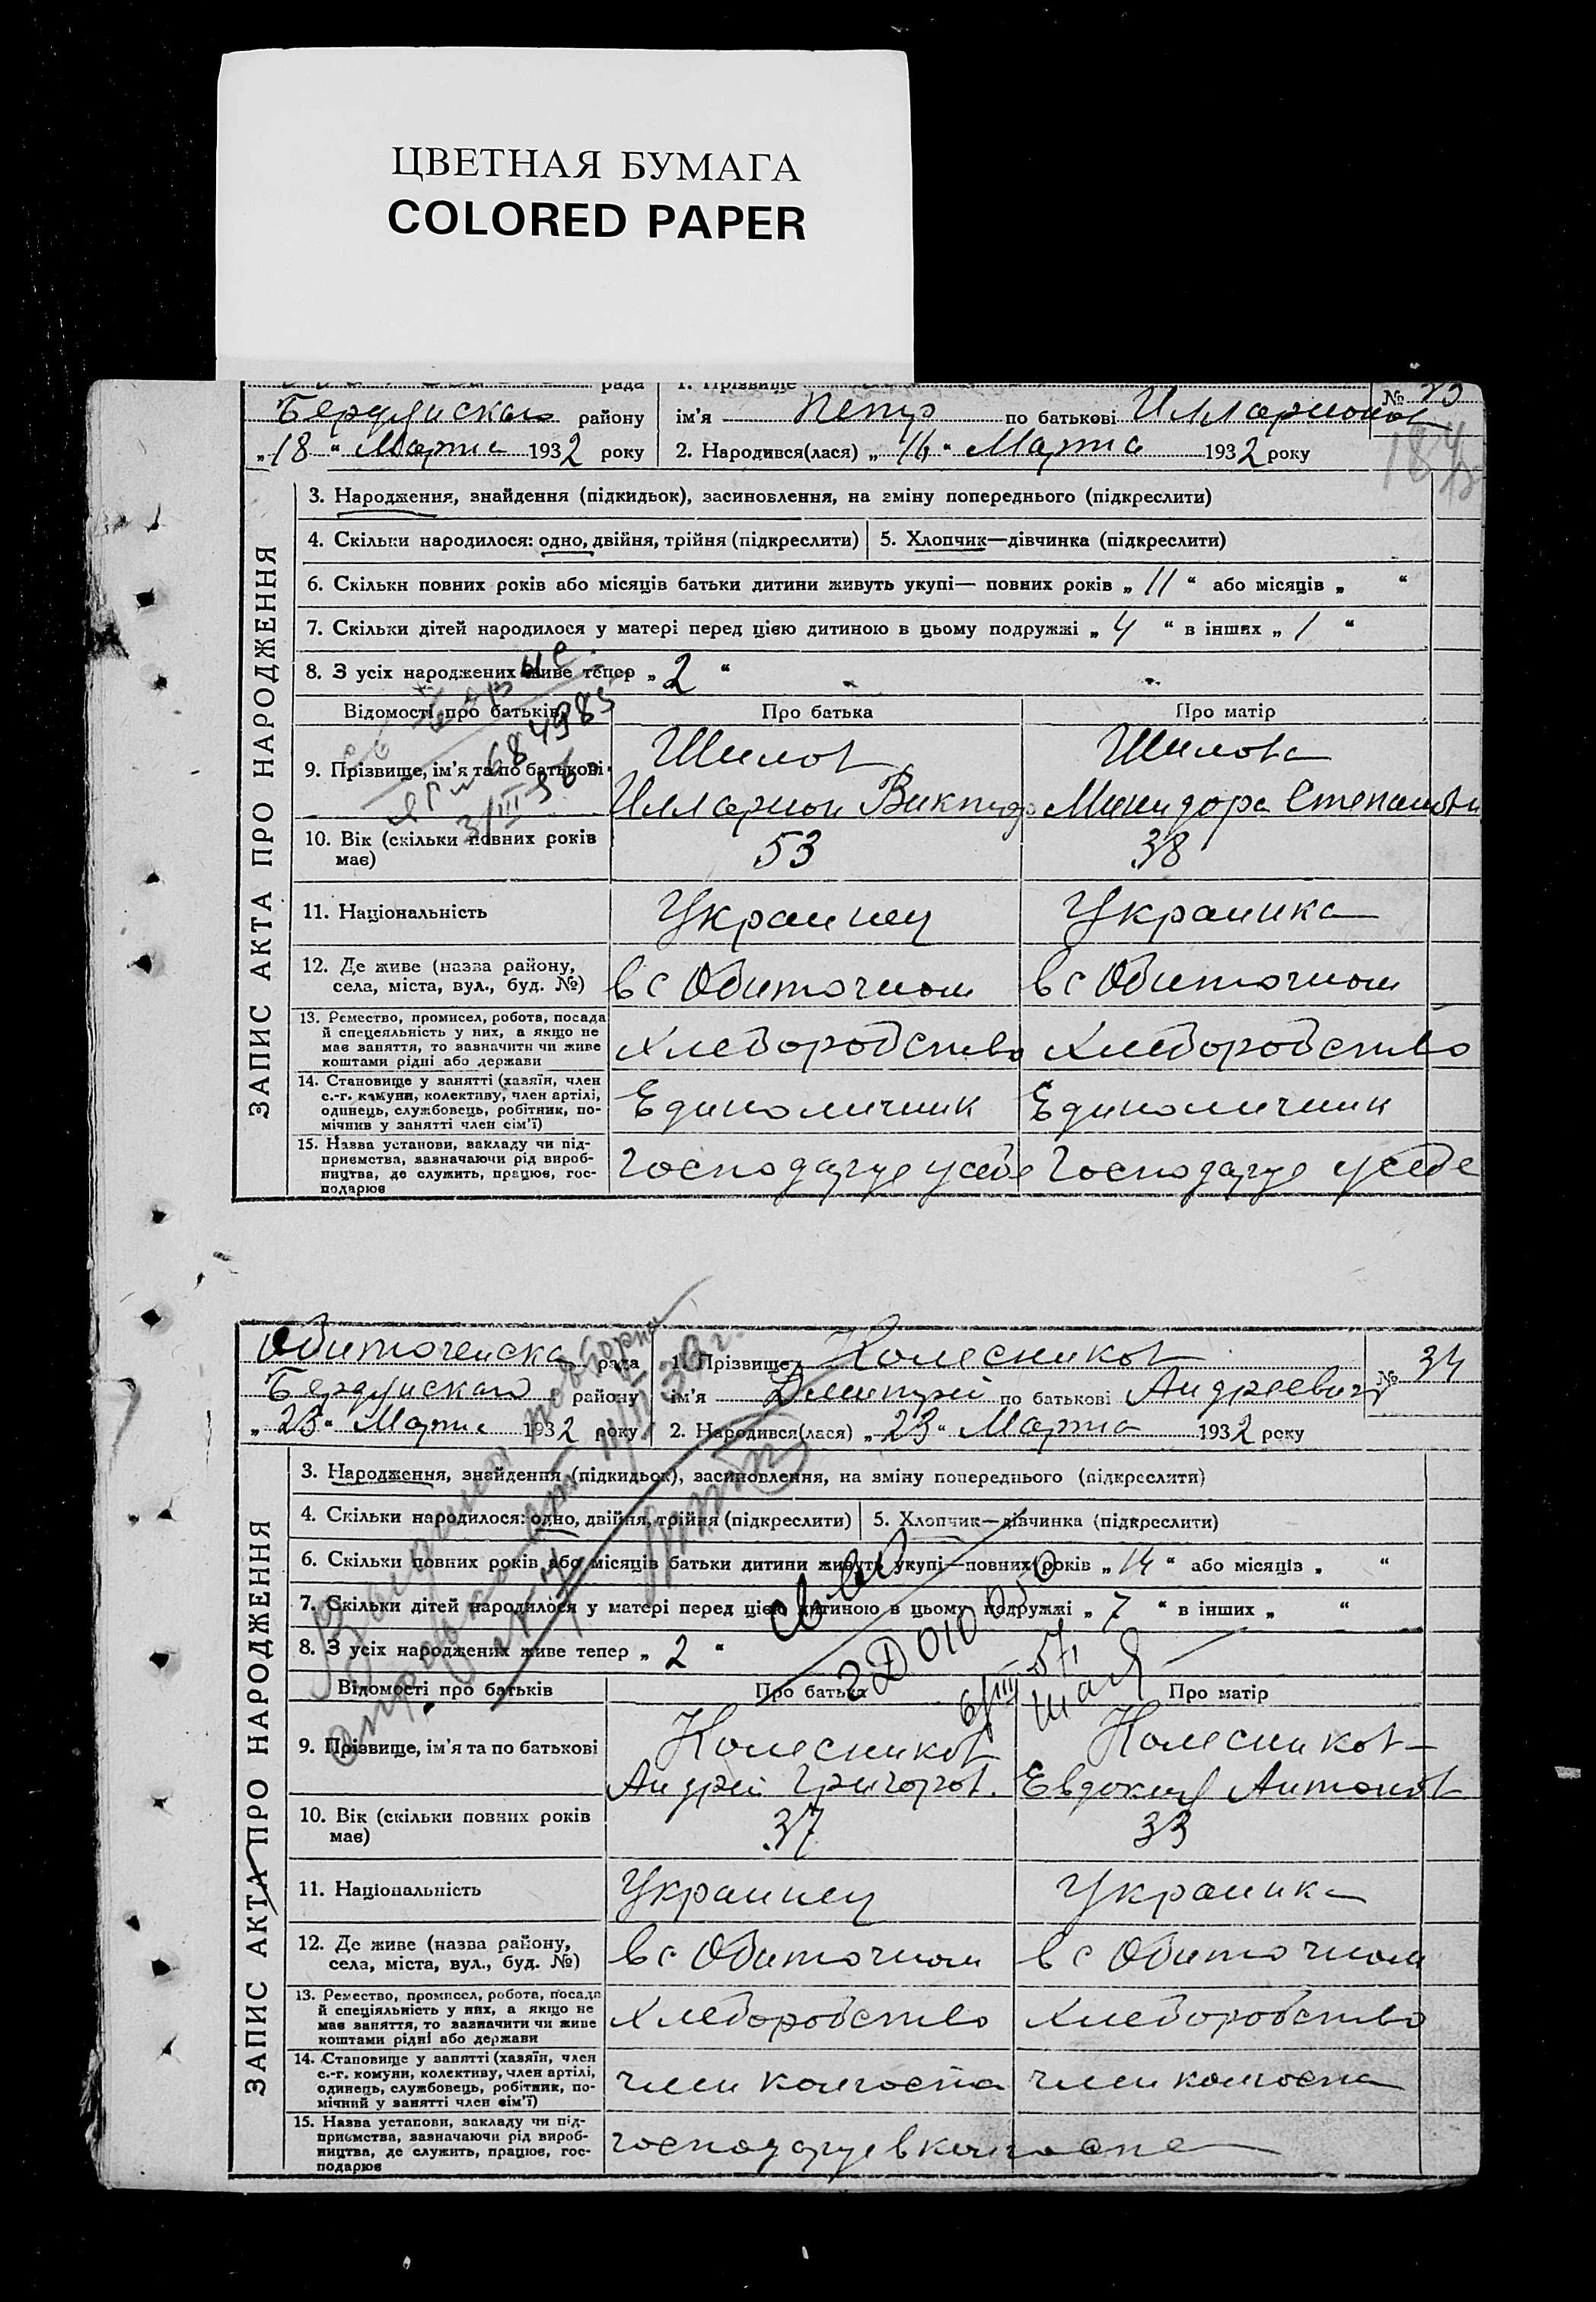 ЦВЕТНАЯ БУМАГА
COLORED PAPER
рада 1. Прізвище №
Бердянского району ім'я Петр по батькові Илларионов
„18“ Марта 1932 року 2. Народився(лася) „16“ Марта 1932 року
ЗАПИС АКТА ПРО НАРОДЖЕННЯ
3. Народження, знайдення (підкидьок), засиновлення, на зміну попереднього (підкреслити)
4. Скільки народилося: одно, двійня, трійня (підкреслити) 5. Хлопчик—дівчинка (підкреслити)
6. Скільки повних років або місяців батьки дитини живуть укупі— повних років „11“ або місяців „ “
7. Скільки дітей народилося у матері перед цією дитиною в цьому подружжі „4“ в інших „1“
8. З усіх народжених живе тепер „2“
Відомості про батьків Про батька Про матір
684985
9. Прізвище, ім'я та по батькові Шилов Шилова
Илларион Виктор Минидора Степановн
3/III
10. Вік (скільки повних років має) 53 38
11. Національність Украинец Украинка
12. Де живе (назва району, села, міста, вул., буд. №) в с Обиточном в с Обиточном
13. Ремество, промисел, робота, посада
й спецеяльність у них, а якщо не
має заняття, то зазначити чи живе
коштами рідні або держави
Хлеборобство Хлеборобство
14. Становище у занятті (хазяїн, член
с.-г. комуни, колективу, член артілі,
одинець, службовець, робітник, по-
мічний у занятті член сім'ї)
Единоличник Единоличник
15. Назва установи, закладу чи під-
приємства, зазначаючи рід вироб-
ництва, де служить, працює, гос-
подарює
Господарує у себе Господарує у себе
Обиточенска рада 1. Прізвище Колесников № 34
Бердянского району ім'я Дмитрий по батькові Андреевич
„23“ Марта 1932 року 2. Народився(лася) „23“ Марта 1932 року
ЗАПИС АКТА ПРО НАРОДЖЕННЯ
3. Народження, знайдення (підкидьок), засиновлення, на зміну попереднього (підкреслити)
4. Скільки народилося: одно, двійня, трійня (підкреслити) 5. Хлопчик—дівчинка (підкреслити)
6. Скільки повних років або місяців батьки дитини живуть укупі—повних років „14“ або місяців „ “
7. Скільки дітей народилося у матері перед цією дитиною в цьому подружжі „7“ в інших „ “
8. З усіх народжених живе тепер „2“
Відомості про батьків Про батька Про матір
9. Прізвище, ім'я та по батькові Колесников Колесников
Андрей Григоров. Евдокия Антонов
10. Вік (скільки повних років має) 37 33
11. Національність Украинец Украинка
12. Де живе (назва району, села, міста, вул., буд. №) в с Обиточном в с Обиточном
13. Ремество, промисел, робота, посада
й спеціяльність у них, а якщо не
має заняття, то зазначити чи живе
коштами рідні або держави
Хлеборобство Хлеборобство
14. Становище у занятті (хазяїн, член
с.-г. комуни, колективу, член артілі,
одинець, службовець, робітник, по-
мічний у занятті член сім'ї)
член колгоспа член колгоспа
15. Назва установи, закладу чи під-
приємства, зазначаючи рід вироб-
ництва, де служить, працює, гос-
подарює
господарує в колгоспе